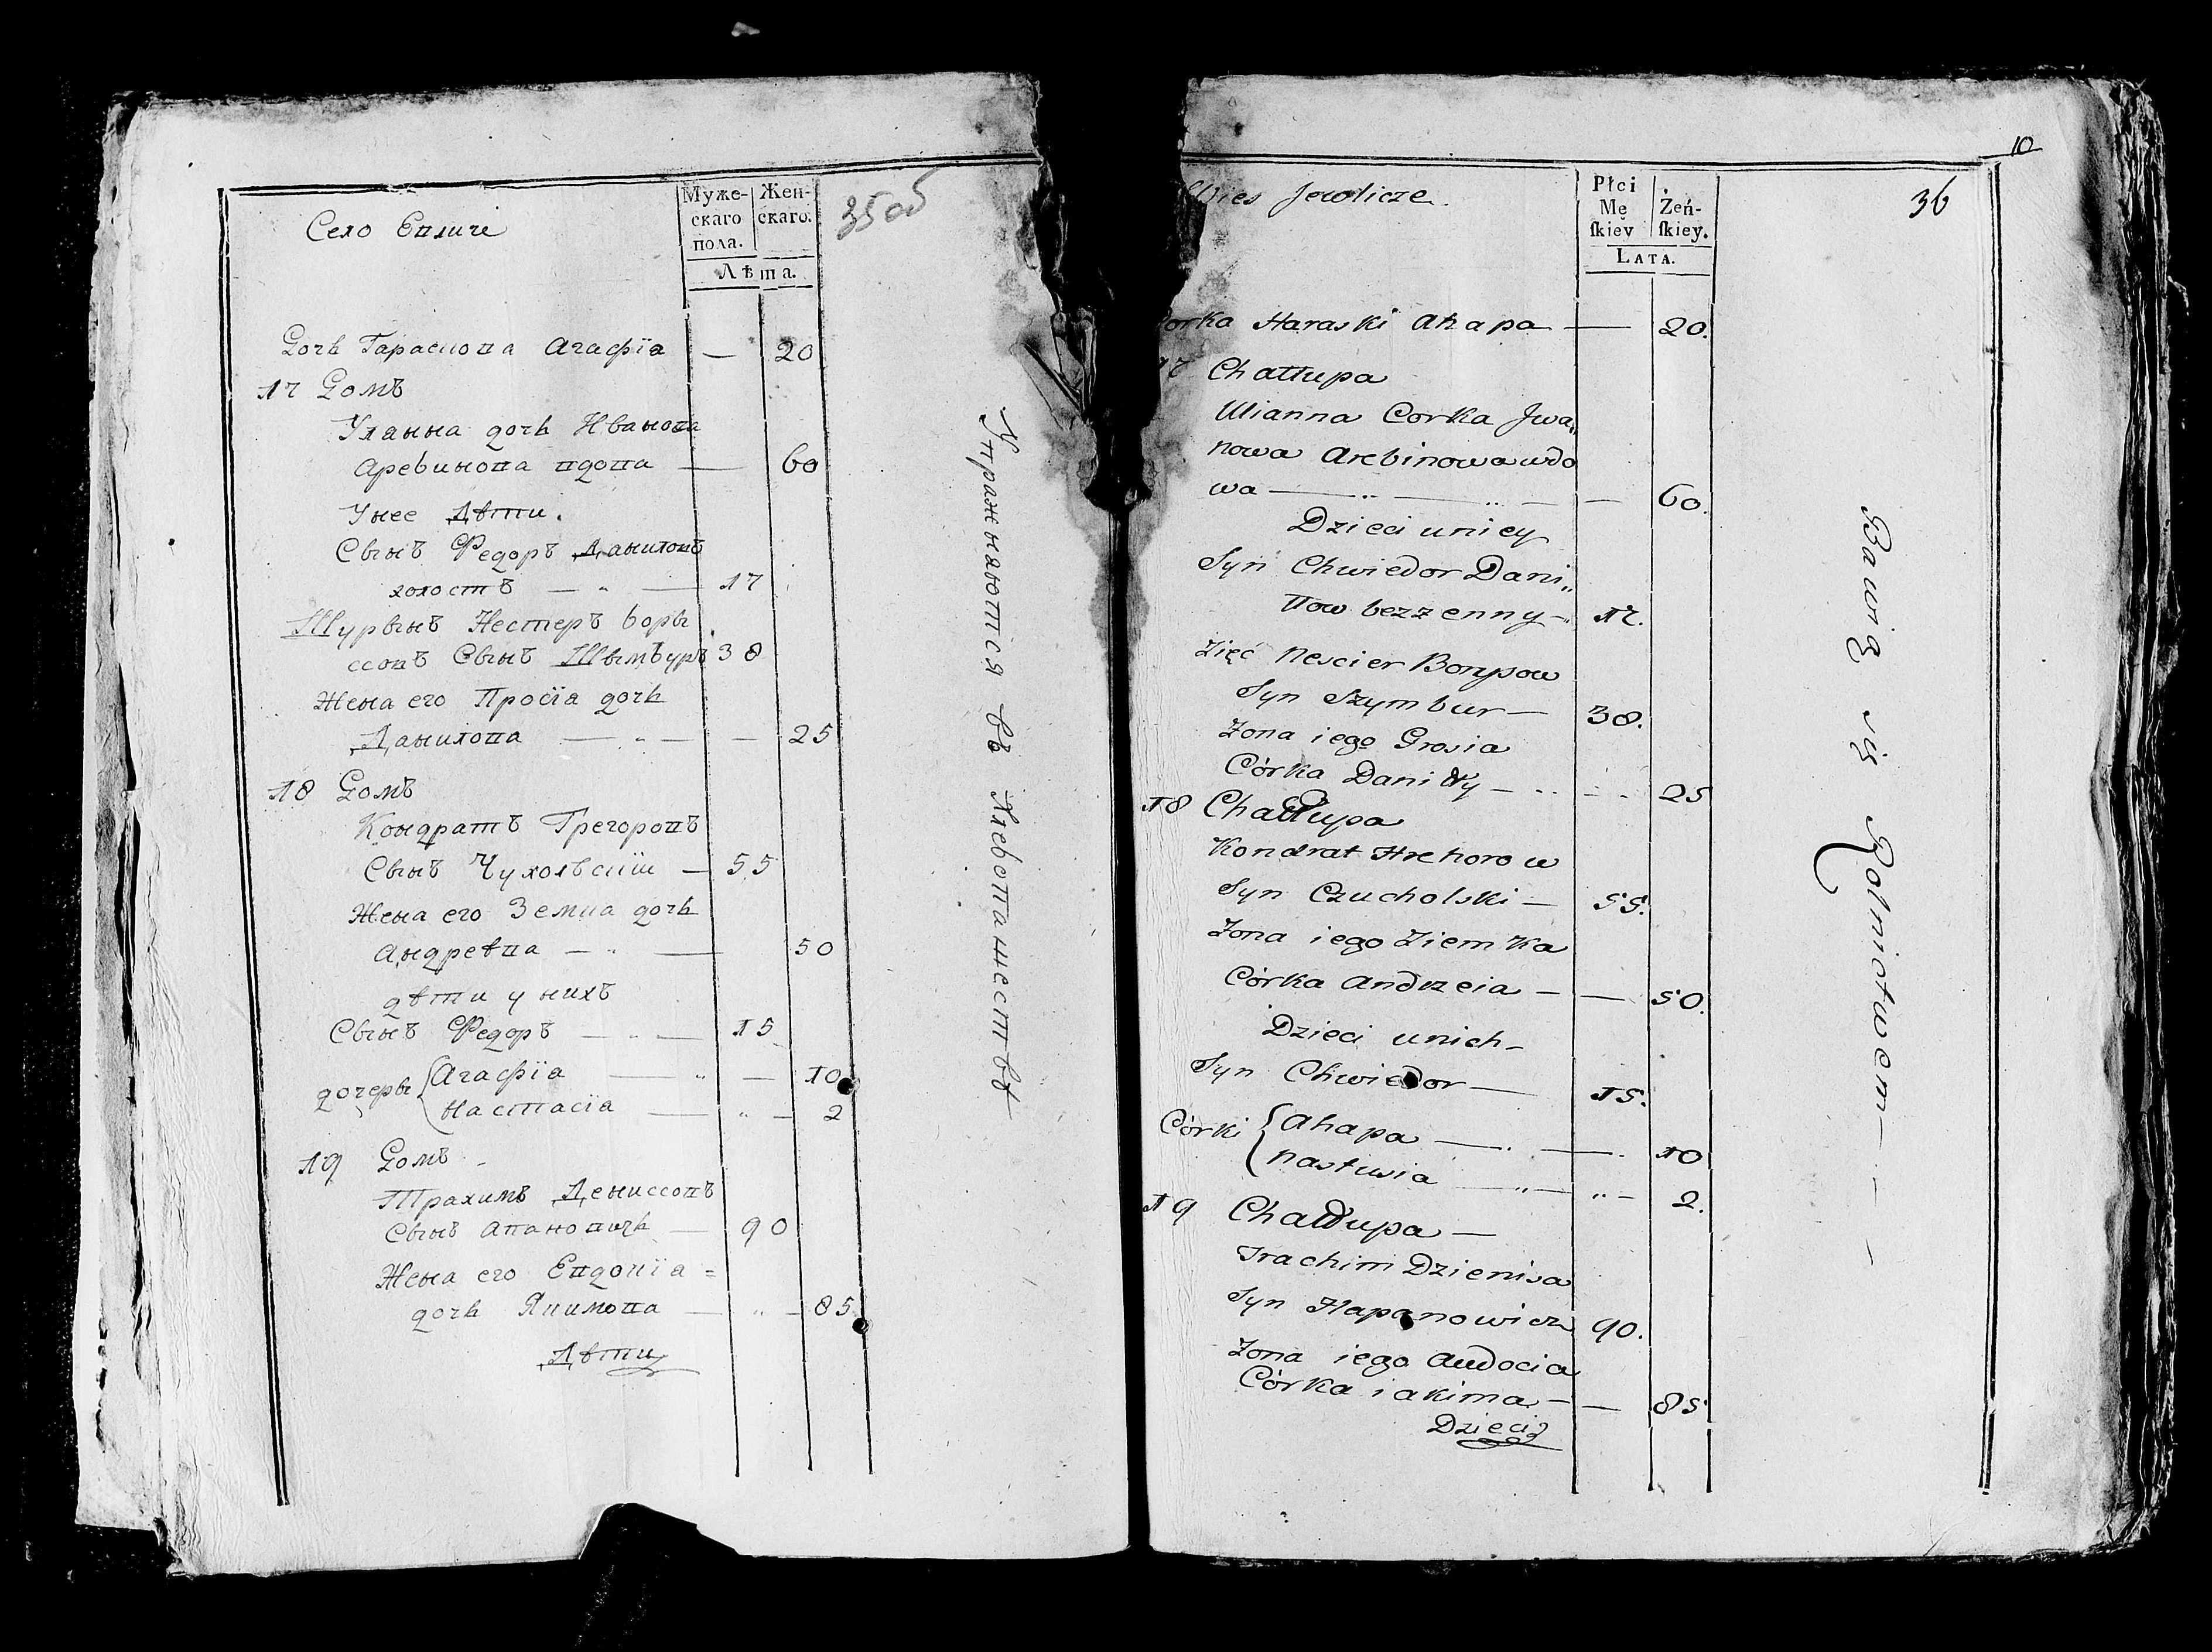 Село Евличи
Муже-
скаго
пола.
Жен-
скаго.
Лѣта.
35 об
Дочь Гараскова Агафїа — 20
17 Домъ
Улянна дочь Иванова
Аребинова вдова — 60
Унее Дѣти.
Сынъ Федоръ Даниловъ
холостъ — „ — 17
Шурынъ Нестеръ Боры
ссовъ Сынъ Шымъуръ 38
Жена его Просїа дочь
Данилова — „ — — 25
18 Домъ
Кондратъ Грегоровъ
Сынъ Чухолѣскїй — 55
Жена его Земка дочь
Андреѣва — „ — 50
дѣти у нихъ
Сынъ Федоръ — „ — 15
дочеры { Агафїа — „ — 10
Настасїа — „ — 2
19 Домъ
Трахимъ Дениссовъ
Сынъ Апановичь — 90
Жена его Евдокїа =
дочь Якимова — „ — 85
Дѣти
Упражняютїся въ Хлебопашествѣ
10
36
Wies Jewlicze.
Płci
Mę
ſkiey
Żeń-
ſkiey.
LATA.
Corka Haraski Ahapa — 20.
17 Chałłupa
Ulianna Corka Jwa„
nowa Arebinowa wdo
wa — „ — „ — — 60.
Dzieci uniey
Syn Chwiedor Dani„
łłow bezzenny — 17.
Zięć Nescier Borysow
Syn Szymbur — 38.
Zona iego Prosia
Córka Daniłły — „ — 25
18 Chałłupa
Kondrat Hrehorow
Syn Czucholski — 55.
Zona iego Ziemka
Córka Andrzeia — — 50.
Dzieci unich —
Syn Chwiedor — 15.
Córki { Ahapa — „ — 10
Nastusia — „ — „ — 2.
19 Chałłupa —
Trachim Dzienisa
Syn Hapanowicz 90.
Zona iego Audocia
Córka iakima — — 85
Dzieci
Bawią się Rolnictwem — „ — —